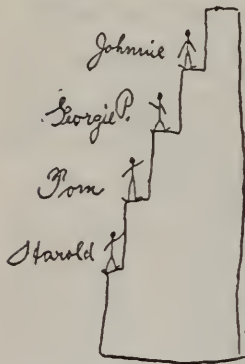 Johnnie
Georgie P.
Tom
Harold